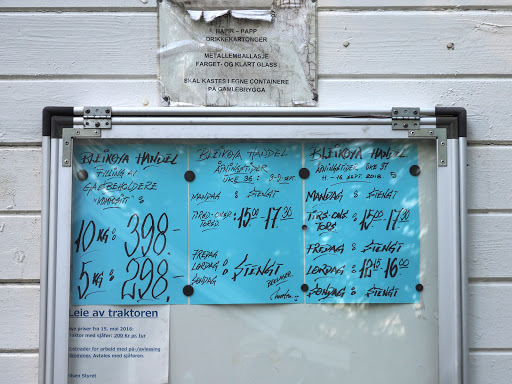 PAPIR - PAPP
DRIKKEKARTONGER
METALLEMBALLASJE
FARGET- OG KLART GLASS
SKAL KASTES I EGNE CONTAINERE
PÅ GAMLEBRYGGA
BLEIKØYA HANDEL
FILLING AV
GASSBEHOLDERE
10 KG: 398.-
5 KG: 298.-
BLEIKØYA HANDEL
ÅPNINGSTIDER
UKE 36:
MANDAG : STENGT
TIRSD-ONSD-
TORSD : 15.00-17.30
FREDAG
LØRDAG : STENGT
SØNDAG
BLEIKØYA HANDEL
ÅPNINGSTIDER UKE 37
SEPT. 2016
MANDAG : STENGT
TIRS-ONS-
TORS : 15.00-17.30
FREDAG : STENGT
LØRDAG : 16.00
SØNDAG : STENGT
Leie av traktoren
priser fra 15. mai 2016:
Traktor med sjåfør: 200 Kr pr. tur
for arbeid med på-/avlessing
kommer. Avtales med sjåføren.
Hilsen Styret